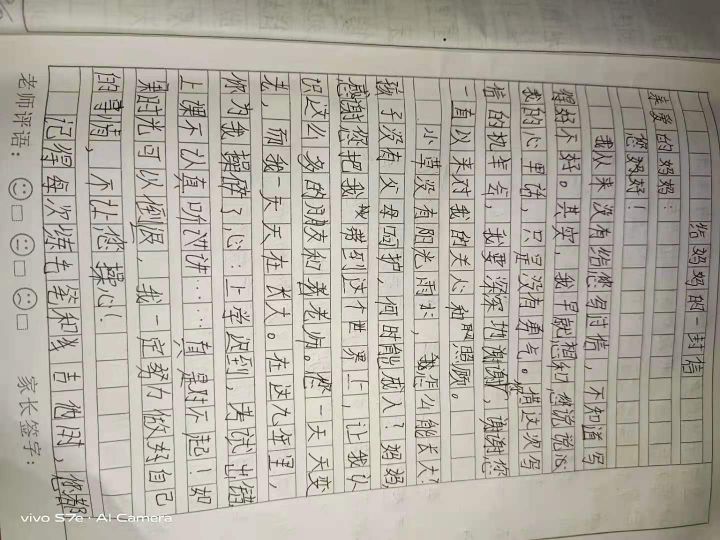 给妈妈的一封信
亲爱的妈妈：
您好！
我从来没有给您写过信，不知道写
得好不好。其实，我早就想和您说说心
我的心里话，只是没有勇气。借这次写
信的机会，我要深深地谢谢您，谢谢您
一直以来对我的关心和照顾。
小草没有阳光雨水，怎么能长大？
孩子没有父母呵护，何时能成人？妈妈
感谢您把我带到这个世界上，让我认
识这么多的朋友和老师。您一天天变
老，而我一天天在长大。在这九年里，
你为我操碎了心：上学迟到，考试出错
上课不认真听讲……真是对不起！如
果时光可以倒流，我一定努力做好自己
的事情，不让您操心！
记得每次练毛笔和吉他时，您都
老师评语：
家长签字：
vivo S7e · AI Camera